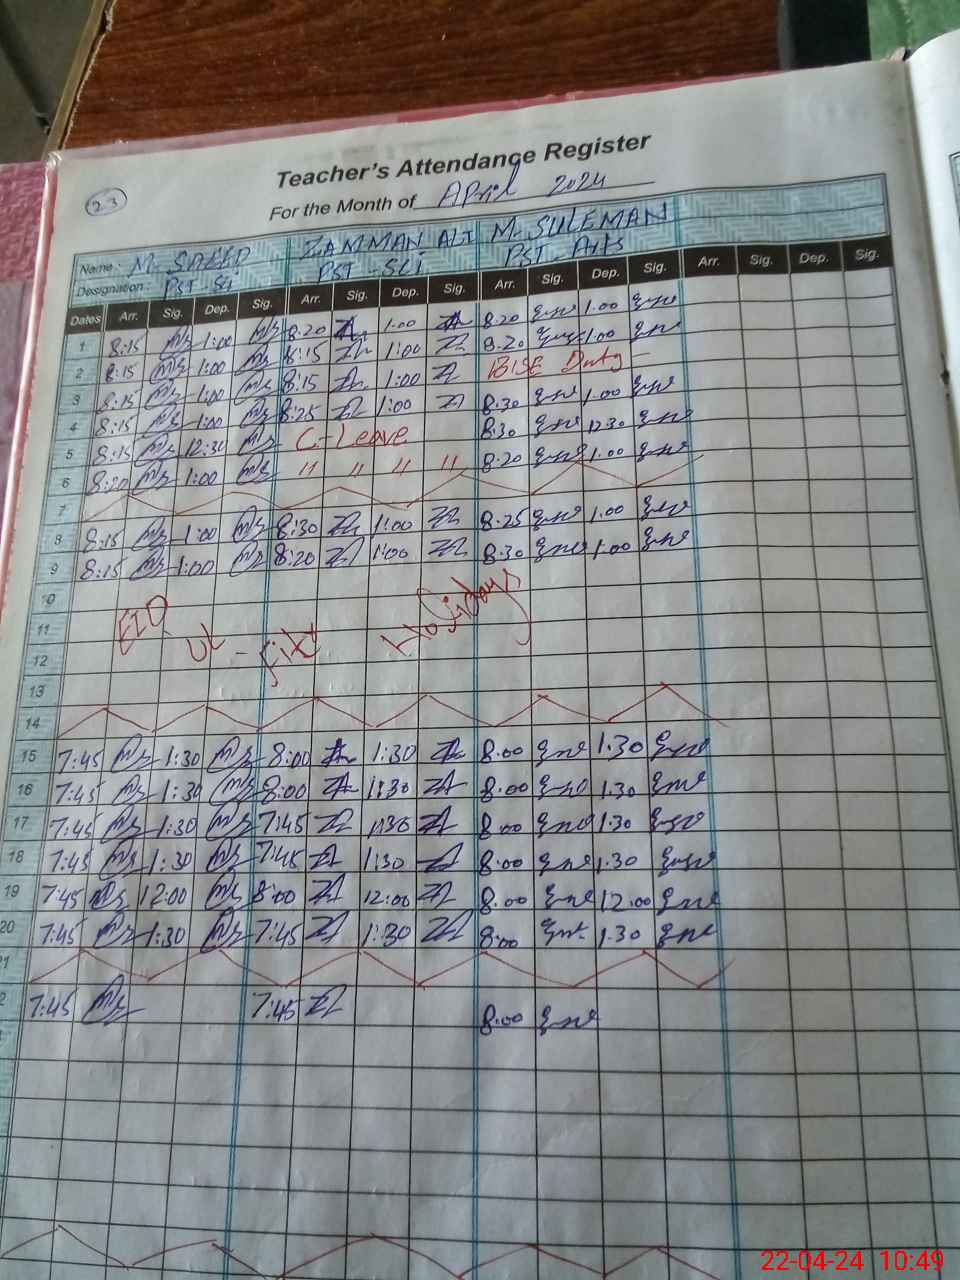 23
Teacher's Attendance Register
For the Month of April 2024
Name : M. SAEED ZAMMAN ALI M. SULEMAN
Designation : PST-Sci PST-Sci PST-Arts
Dates Arr. Sig. Dep. Sig. Arr. Sig. Dep. Sig. Arr. Sig. Dep. Sig. Arr. Sig. Dep. Sig.
1 8:15 1:00 8:20 1:00 8:20 1.00
2 8:15 1:00 8:15 1:00 8.20 1.00
3 8:15 1:00 8:15 1:00 BISE Duty
4 8:15 1:00 8:25 1:00 8:30 1.00
5 8:15 12:30 C-Leave 8:30 12:30
6 8:20 1:00 " " " " 8.20 1.00
7
8 8:15 1:00 8:30 1:00 8.25 1.00
9 8:15 1:00 8:20 1:00 8:30 1.00
10
11 EID UL - Fitr Holidays
12
13
14
15 7:45 1:30 8:00 1:30 8.00 1.30
16 7:45 1:30 8:00 1:30 8.00 1.30
17 7:45 1:30 7:45 1:30 8.00 1.30
18 7:45 1:30 7:45 1:30 8.00 1.30
19 7:45 12:00 8:00 12:00 8.00 12.00
20 7:45 1:30 7:45 1:30 8:00 1.30
7:45 7:45 8.00
22-04-24 10:49